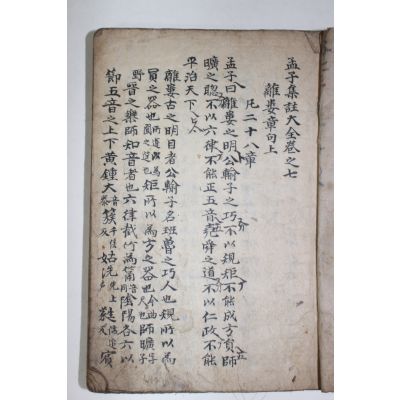 孟子集註大全卷之七
離婁章句上
凡二十八章
孟子曰離婁之明公輸子之巧不以規矩不能成方員師
曠之聰不以六律不能正五音堯舜之道不以仁政不能
平治天下
離婁古之明目者公輸子名班魯之巧人也規所以為
員之器也矩所以為方之器也師曠
晉之樂師知音者也六律截竹為筩陰陽各六以
節五音之上下黃鍾大蔟姑洗蕤賓